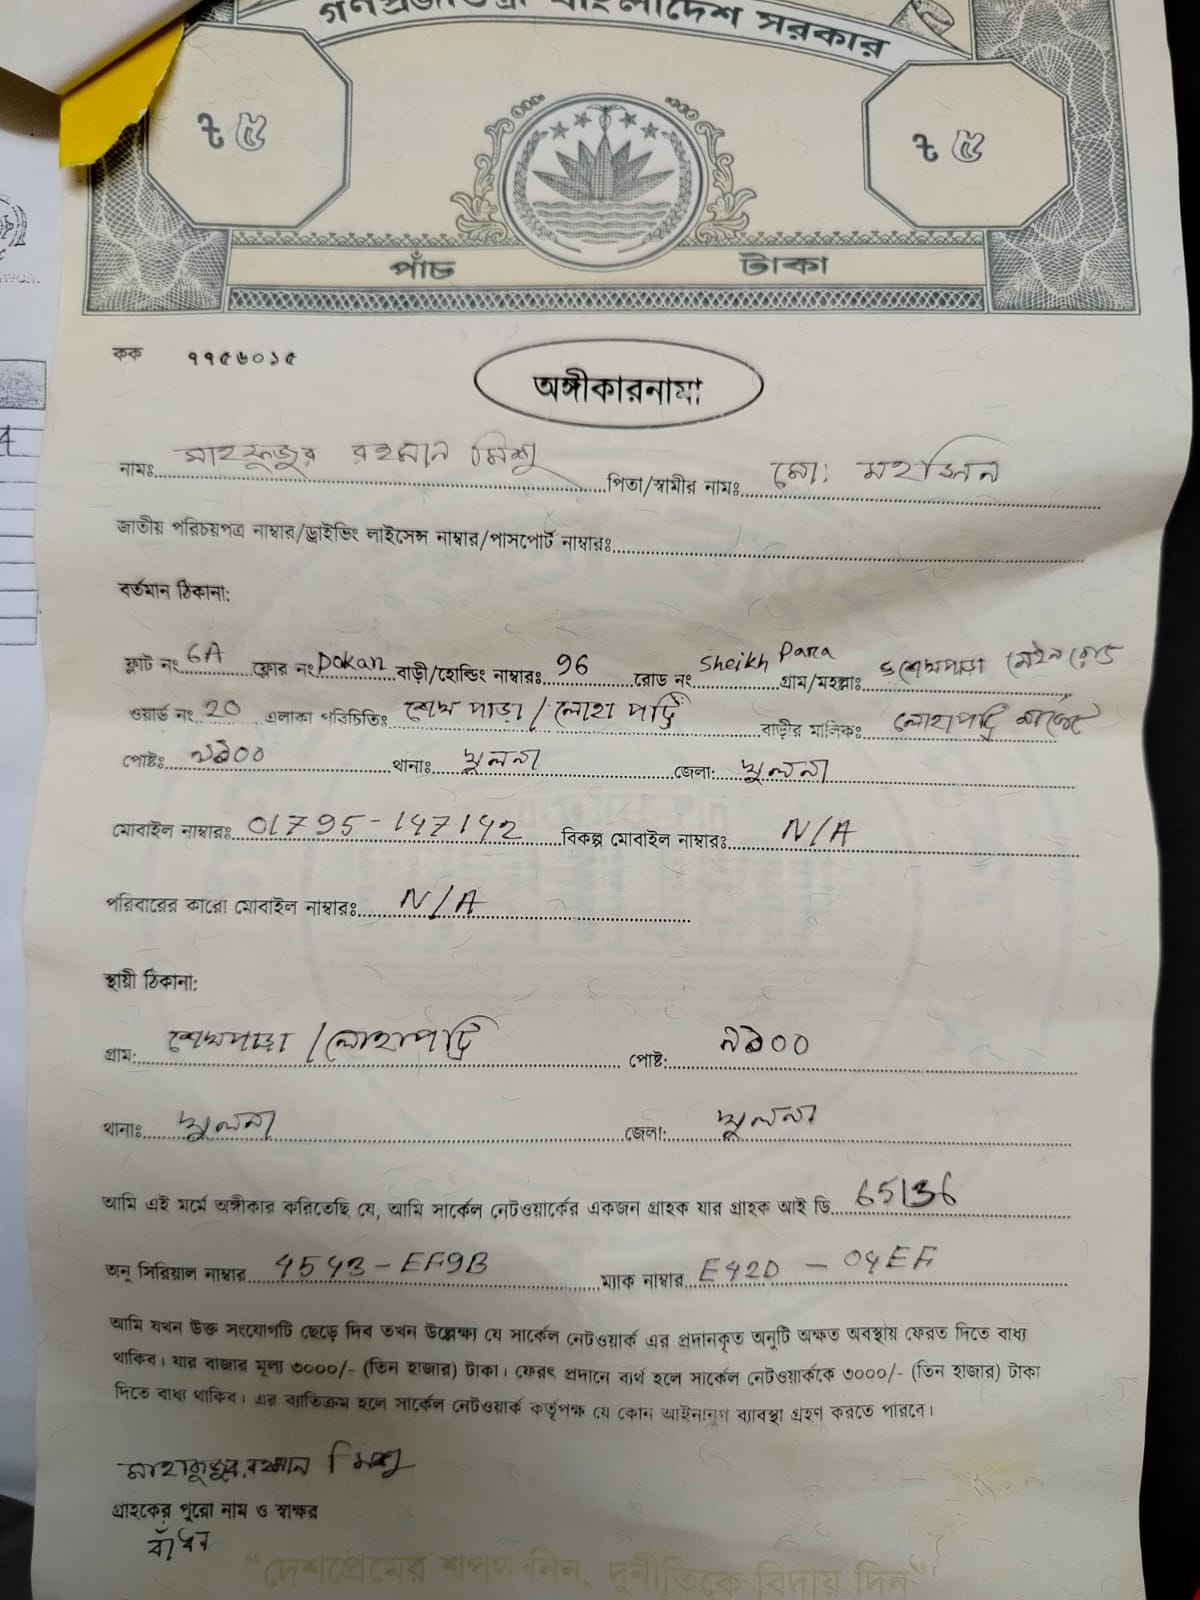 গণপ্রজাতন্ত্রী বাংলাদেশ সরকার
৳ ৫ ৳ ৫
পাঁচ টাকা
কক ৭৭৫৬০১৫
অঙ্গীকারনামা
নামঃ মাহফুজুর রহমান মিশু পিতা/স্বামীর নামঃ মোঃ মহসিন
জাতীয় পরিচয়পত্র নাম্বার/ড্রাইভিং লাইসেন্স নাম্বার/পাসপোর্ট নাম্বারঃ
বর্তমান ঠিকানা:
ফ্লাট নং 6A ফ্লোর নং Dokan বাড়ী/হোল্ডিং নাম্বারঃ 96 রোড নং Sheikh Para গ্রাম/মহল্লাঃ শেখপাড়া মেইন রোড
ওয়ার্ড নং 20 এলাকা পরিচিতিঃ শেখ পাড়া/লোহা পট্টি বাড়ীর মালিকঃ লোহাপট্টি মার্কেট
পোষ্টঃ ৯১০০ থানাঃ খুলনা জেলা: খুলনা
মোবাইল নাম্বারঃ 01795-147142 বিকল্প মোবাইল নাম্বারঃ N/A
পরিবারের কারো মোবাইল নাম্বারঃ N/A
স্থায়ী ঠিকানা:
গ্রাম: শেখপাড়া/লোহাপট্টি পোষ্ট: ৯১০০
থানাঃ খুলনা জেলা: খুলনা
আমি এই মর্মে অঙ্গীকার করিতেছি যে, আমি সার্কেল নেটওয়ার্কের একজন গ্রাহক যার গ্রাহক আই ডি 65136
অনু সিরিয়াল নাম্বার 4543-EF9B ম্যাক নাম্বার E42D - 04EF
আমি যখন উক্ত সংযোগটি ছেড়ে দিব তখন উল্লেক্ষ্য যে সার্কেল নেটওয়ার্ক এর প্রদানকৃত অনুটি অক্ষত অবস্থায় ফেরত দিতে বাধ্য
থাকিব। যার বাজার মূল্য ৩০০০/- (তিন হাজার) টাকা। ফেরৎ প্রদানে ব্যর্থ হলে সার্কেল নেটওয়ার্ককে ৩০০০/- (তিন হাজার) টাকা
দিতে বাধ্য থাকিব। এর ব্যতিক্রম হলে সার্কেল নেটওয়ার্ক কর্তৃপক্ষ যে কোন আইনানুগ ব্যবস্থা গ্রহণ করতে পারবে।
মাহফুজুর রহমান মিশু
গ্রাহকের পুরো নাম ও স্বাক্ষর
বাঁধন
“দেশপ্রেমের শপথ নিন, দুর্নীতিকে বিদায় দিন”